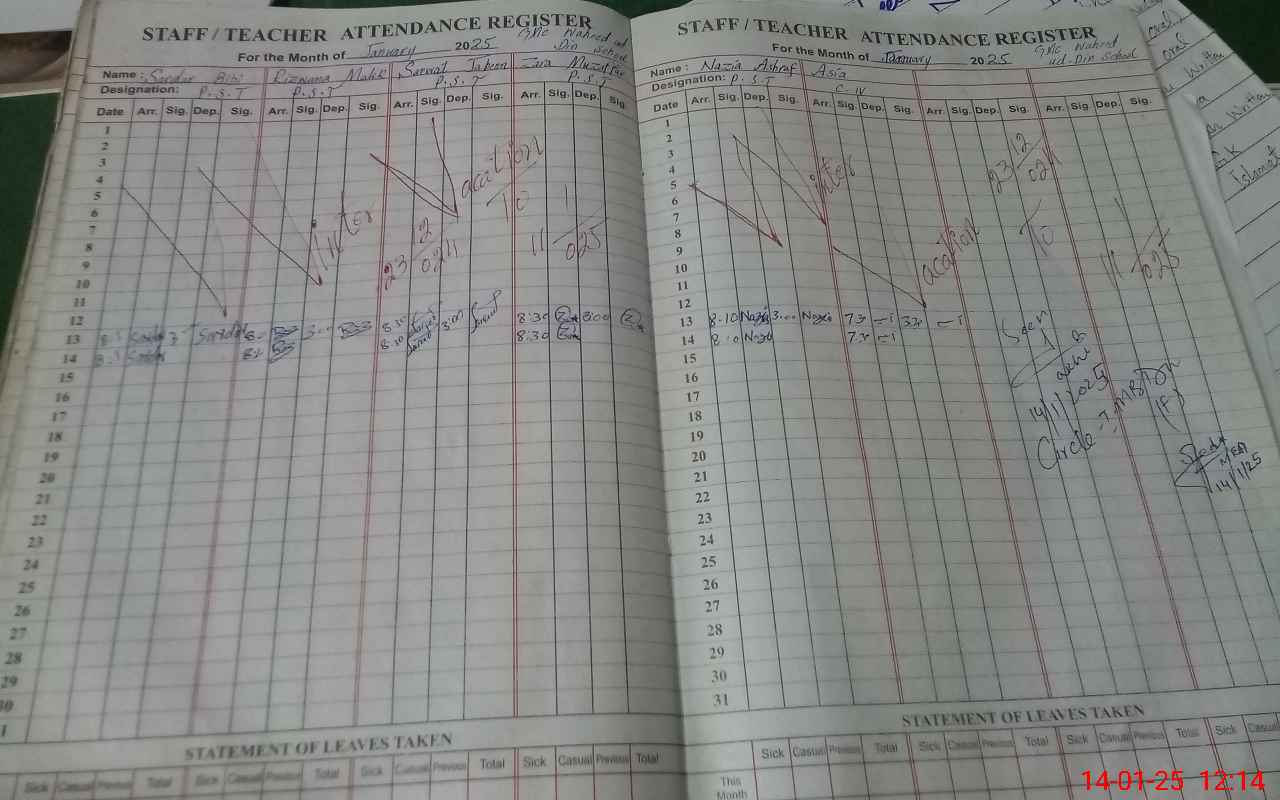 STAFF / TEACHER ATTENDANCE REGISTER
For the Month of January 2025 GMC Waheed ud Din School
Name : Sardar Bibi Rizwana Malik Sarwat Jabeen Zara Muzaffar
Designation: P.S.T P.S.T P.S.T P.S.T
Date Arr. Sig. Dep. Sig. Arr. Sig. Dep. Sig. Arr. Sig. Dep. Sig. Arr. Sig. Dep. Sig.
1
2
3
4
5
6
7
8
9
10
11
12
13 3:00 8:30 8:30 3:00
14 8:30 8:30
15
16
17
18
19
20
21
22
23
24
25
26
27
28
29
30
Winter Vacation
23 12 024 10 1
11 025
STATEMENT OF LEAVES TAKEN
Sick Casual Previous Total Sick Casual Previous Total Sick Casual Previous Total Sick Casual Previous Total
STAFF / TEACHER ATTENDANCE REGISTER
For the Month of January 2025 GMC Waheed ud-Din School
Name : Nazia Ashraf Asia
Designation: P.S.T C-IV
Date Arr. Sig. Dep. Sig. Arr. Sig. Dep. Sig. Arr. Sig. Dep. Sig. Arr. Sig. Dep. Sig.
1
2
3
4
5
6
7
8
9
10
11
12
13 8:10 Nazia 3:00 Nazia 7:30 3:30
14 8:10 Nazia 7:30
15
16
17
18
19
20
21
22
23
24
25
26
27
28
29
30
31
Winter Vacation
23 12 024
10
11 025
Seen
14/1/2025
Circle
(F)
MEA
14/1/25
STATEMENT OF LEAVES TAKEN
Sick Casual Previous Total Sick Casual Previous Total Sick Casual Previous Total Sick Casual
This Month
oral
oral
Written
Written
Islamat
14-01-25 12:14